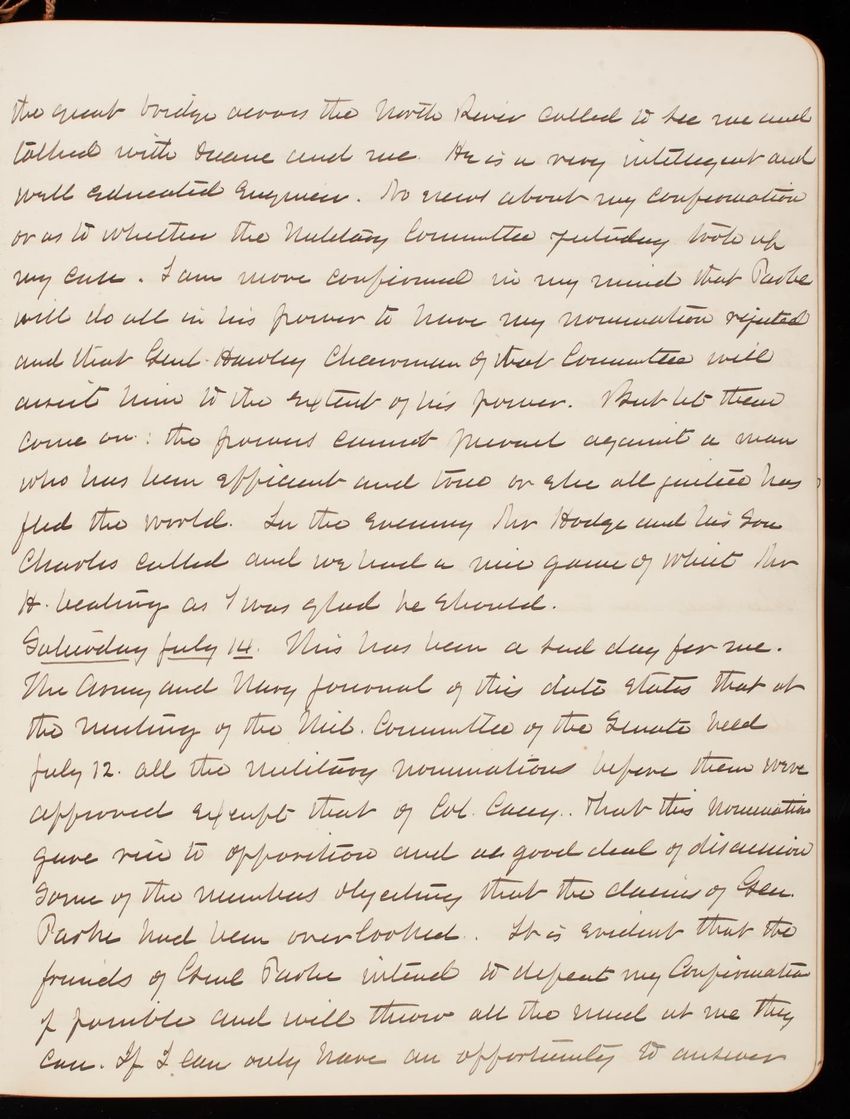 the great bridge across the North River called to see me and
talked with Duane and me. He is a very intelligent and
well educated Engineer. No news about my confirmation
or as to whether the Military Committee yesterday took up
my case. I am more confirmed in my mind that Parke
will do all in his power to have my nomination rejected
and that Genl. Hawley Chairman of that Committee will
assist him to the extent of his power. But let them
come on: the powers cannot prevail against a man
who has been efficient and true or else all justice has
fled the world. In the evening Mr Hodge and his son
Charles called and we had a nice game of whist Mr
H. beating as I was glad he should.
Saturday July 14. This has been a sad day for me.
The Army and Navy Journal of this date states that at
the meeting of the Mil. Committee of the Senate held
July 12. all the military nominations before them were
approved except that of Col. Casey.. That this nomination
gave rise to opposition and a good deal of discussion
some of the members objecting that the claims of Gen.
Parke had been overlooked. It is evident that the
friends of Genl Parke intend to defeat my Confirmation
if possible and will throw all the mud at me they
can. If I can only have an opportunity to answer